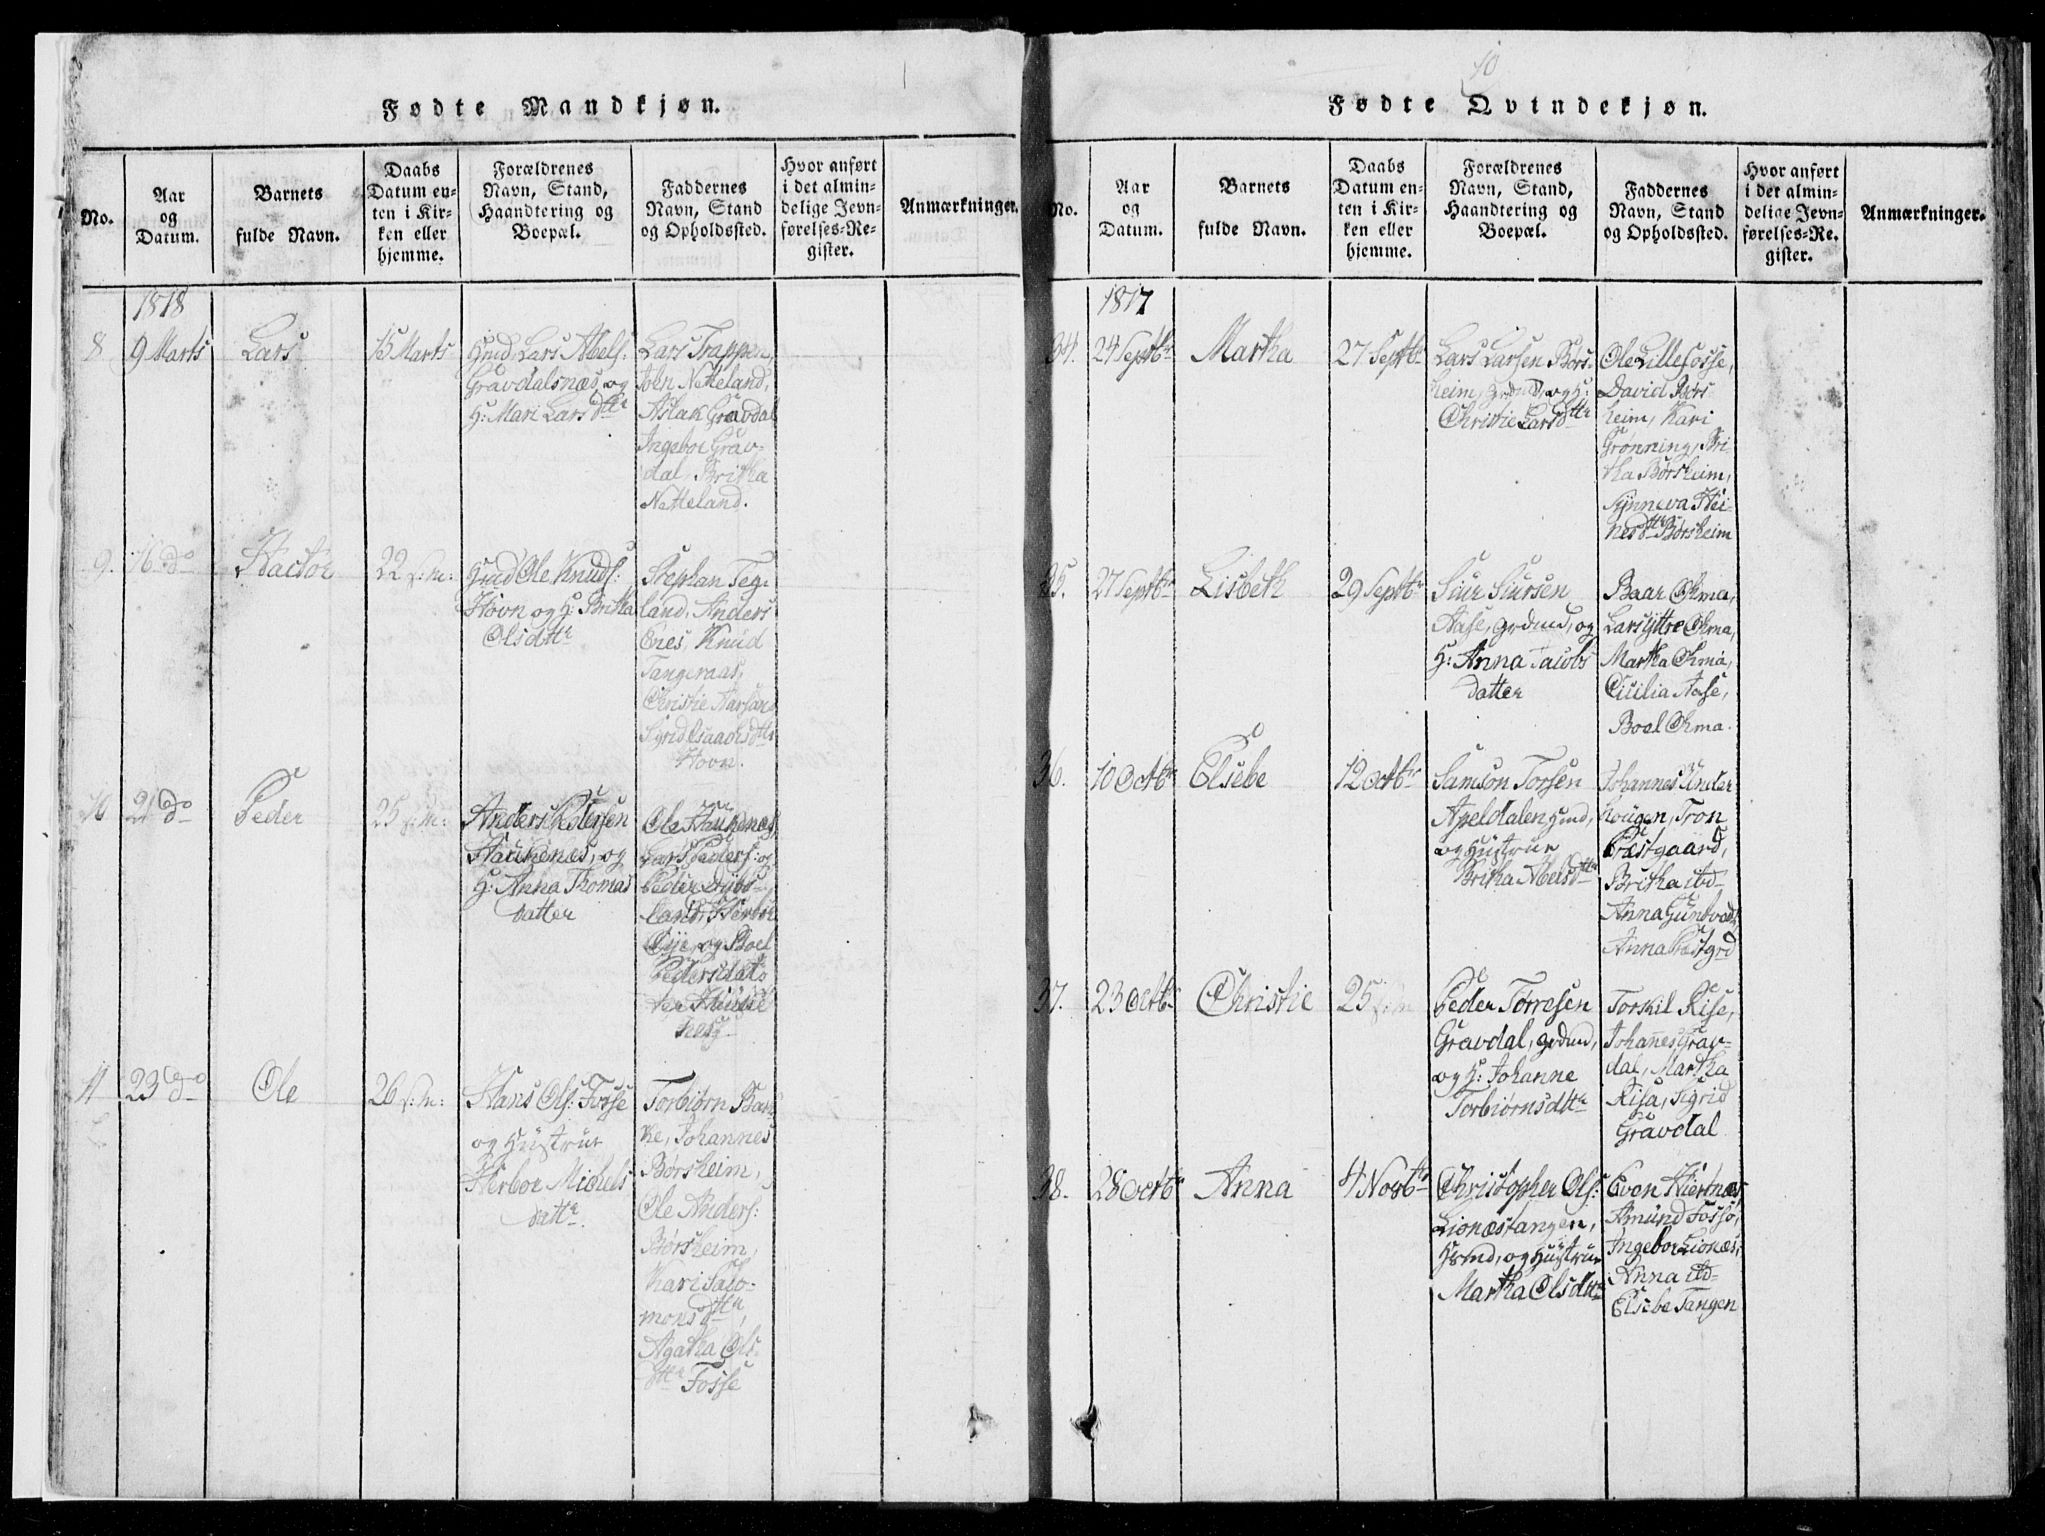 10
Fødte Mandkjøn.
No.
Aar
og
Datum.
Barnets
fulde Navn.
Daabs
Datum en-
ten i Kir-
ken eller
hjemme.
Forældrenes
Navn, Stand,
Haandtering og
Boepæl.
Faddernes
Navn, Stand
og Opholdssted.
Hvor anført
i det almin-
delige Jevn-
førelses-Re-
gister.
Anmærkninger.
1818
8
9 Marts
Lars
15 Marts
Hmd. Lars Abels:
Gravdalsnæs, og
H: Mari Larsdttr
Lars Trappen,
John Netteland,
Aslak Gravdal
Ingebor Grav-
dal, Britha
Netteland.
9.
16 do
Hactor
22 s:m:
Grad Ole Knuds:
Hovn og H: Britha
Olsdttr
Stephan Teg-
land, Anders
Enes, Knud
Tangeraas,
Christie Aarsand
Sigrid Isaachsdttr
Hovn.
10
21 do
Peder
25 s:m:
Anders Pedersen
Haukenæs, og
H: Anna Thomas
datter
Ole Haukenæs
Lars Peders: og
Peder
land, Herbor
Øye, og Boel
Pedersdat-
ter
11
23 do
Ole
26 s:m:
Hans Ols: Fosse
og Hustrue
Herbor Michels
dattr.
Torbiørn Bak-
ke, Johannes
Børsheim,
Ole Anders:
Børsheim,
Kari Salo-
monsdttr,
Agatha Ols-
dttr Fosse
Fødte Qvindekjøn.
No.
Aar
og
Datum.
Barnets
fulde Navn.
Daabs
Datum en-
ten i Kir-
ken eller
hjemme.
Forældrenes
Navn, Stand,
Haandtering og
Boepæl.
Faddernes
Navn, Stand
og Opholdssted.
Hvor anført
i det almin-
delige Jevn-
førelses-Re-
gister.
Anmærkninger.
1817
34.
24 Septbr
Martha
27 Septbr
Lars Larsen Børs-
heim, grdmd, og H:
Christie Larsdttr
Ole Lillefosse,
David Børs-
heim, Kari
Grønning, Bri
tha Børsheim,
Synneva Hei-
nesdttr Børsheim
35.
27 Septbr
Lisbeth
29 Septbr
Siur Siursen
Aase, grdmd, og
H: Anna Jacobs
datter
Baar Ohma,
Lars yttre Ohma,
Martha Ohma,
Cicilia Aase,
Boel Ohma.
36.
10 Octbr
Elsebe
12 Octbr
Samson Torsen
Apeldalen Hmd,
og Hustrue
Britha Abelsdttr
Johannes Under
hougen, Tron
Præstgaard,
Britha ibd-
Anna Gundvads
Anna Præstgrd
37.
23 Octb.
Christie
25 s:m
Peder Torresen
Gravdal, grdmd,
og H: Johanne
Torbiørnsdttr
Torkil Risa,
Johanes Grav-
dal, Martha
Risa, Sigrid
Gravdal
38.
28 Octbr
Anna
4 Novbr
Christopher Ols:
Lionæstangen,
Hsmd, og Hustrue
Martha Olsdttr
Even Hiertnæs,
Amund Fosse,
Ingebor Lionæs,
Anna ibd-
Elsebe Tangen